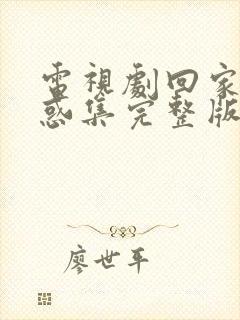 電視劇回家
惑集完整版
廖世平